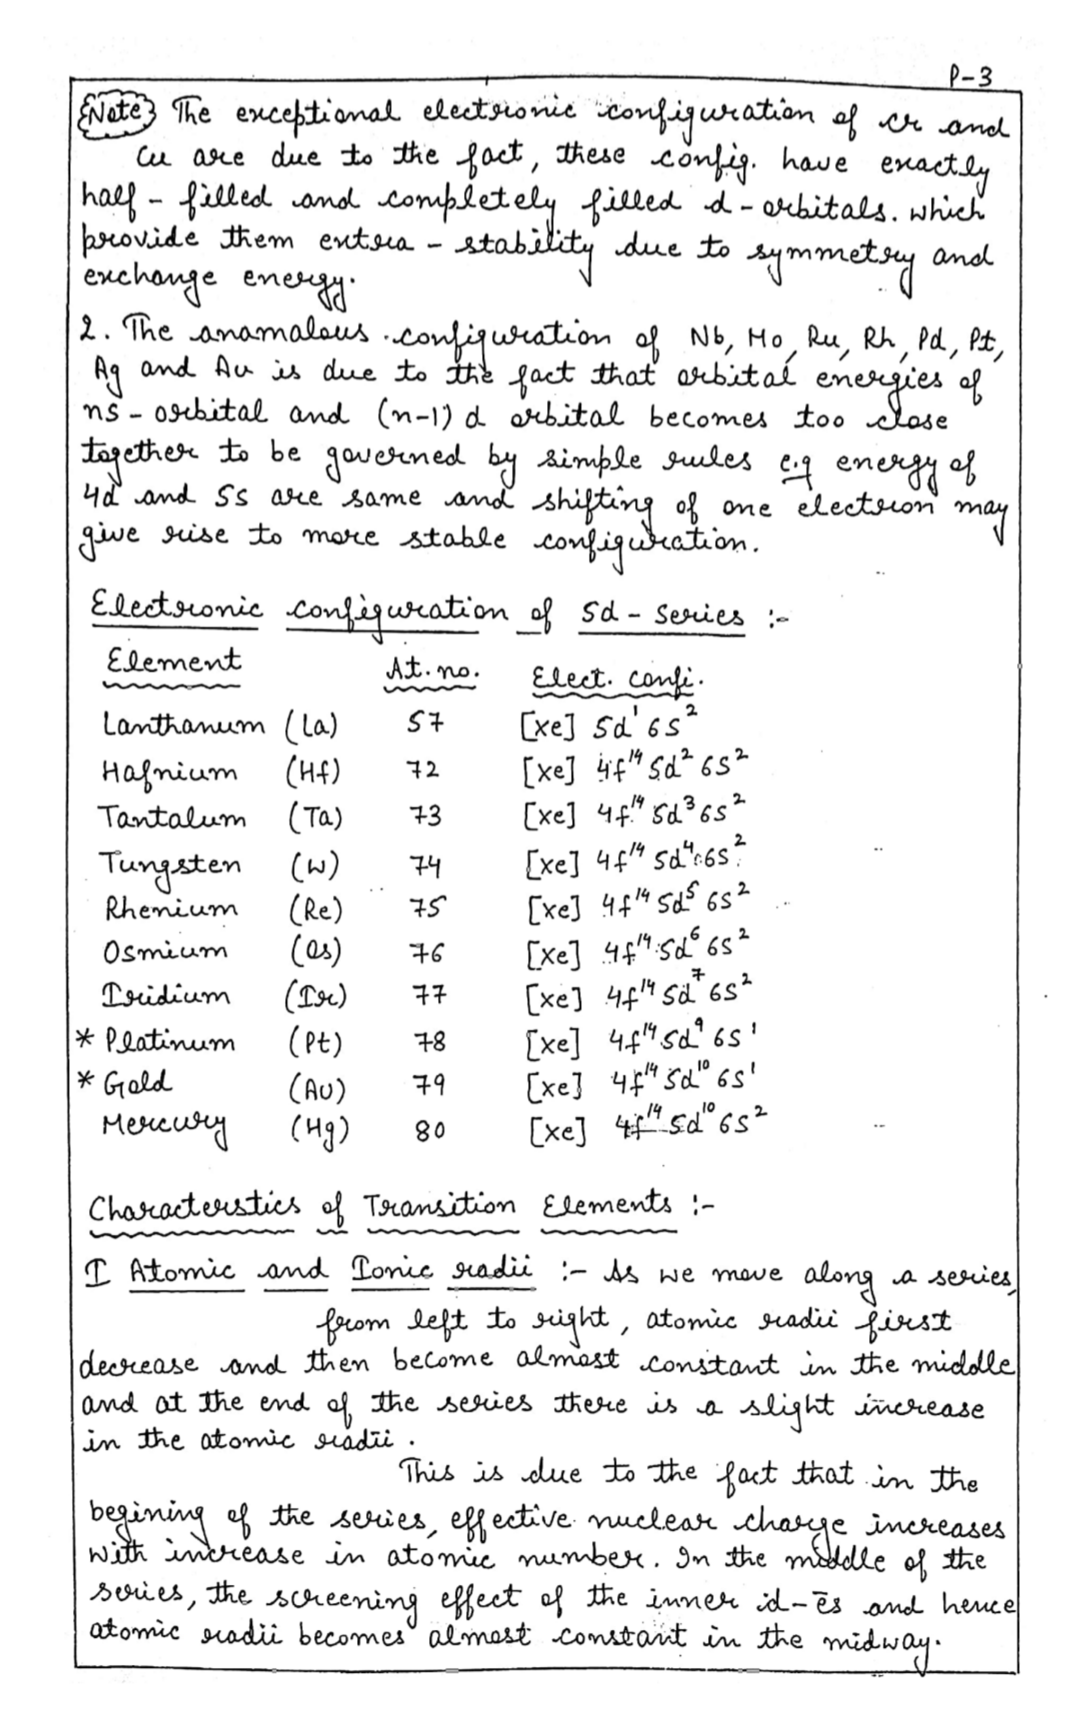 P-3
Note The exceptional electronic configuration of Cr and
Cu are due to the fact, these config. have exactly
half - filled and completely filled d - orbitals. which
provide them extra - stability due to symmetry and
exchange energy.
2. The anamalous configuration of Nb, Mo, Ru, Rh, Pd, Pt,
Ag and Au is due to the fact that orbital energies of
ns - orbital and (n-1) d orbital becomes too close
together to be governed by simple rules e.g energy of
4d and 5s are same and shifting of one electron may
give rise to more stable configuration.
Electronic configuration of 5d - series :-
Element At. no. Elect. confi.
Lanthanum (La) 57 [Xe] 5d¹ 6s²
Hafnium (Hf) 72 [Xe] 4f¹⁴ 5d² 6s²
Tantalum (Ta) 73 [Xe] 4f¹⁴ 5d³ 6s²
Tungsten (W) 74 [Xe] 4f¹⁴ 5d⁴ 6s²
Rhenium (Re) 75 [Xe] 4f¹⁴ 5d⁵ 6s²
Osmium (Os) 76 [Xe] 4f¹⁴ 5d⁶ 6s²
Iridium (Ir) 77 [Xe] 4f¹⁴ 5d⁷ 6s²
* Platinum (Pt) 78 [Xe] 4f¹⁴ 5d⁹ 6s¹
* Gold (Au) 79 [Xe] 4f¹⁴ 5d¹⁰ 6s¹
Mercury (Hg) 80 [Xe] 4f¹⁴ 5d¹⁰ 6s²
Characterstics of Transition Elements :-
I Atomic and Ionic radii :- As we move along a series,
from left to right, atomic radii first
decrease and then become almost constant in the middle
and at the end of the series there is a slight increase
in the atomic radii .
This is due to the fact that in the
begining of the series, effective nuclear charge increases
with increase in atomic number. In the middle of the
series, the screening effect of the inner d-ēs and hence
atomic radii becomes almost constant in the midway.